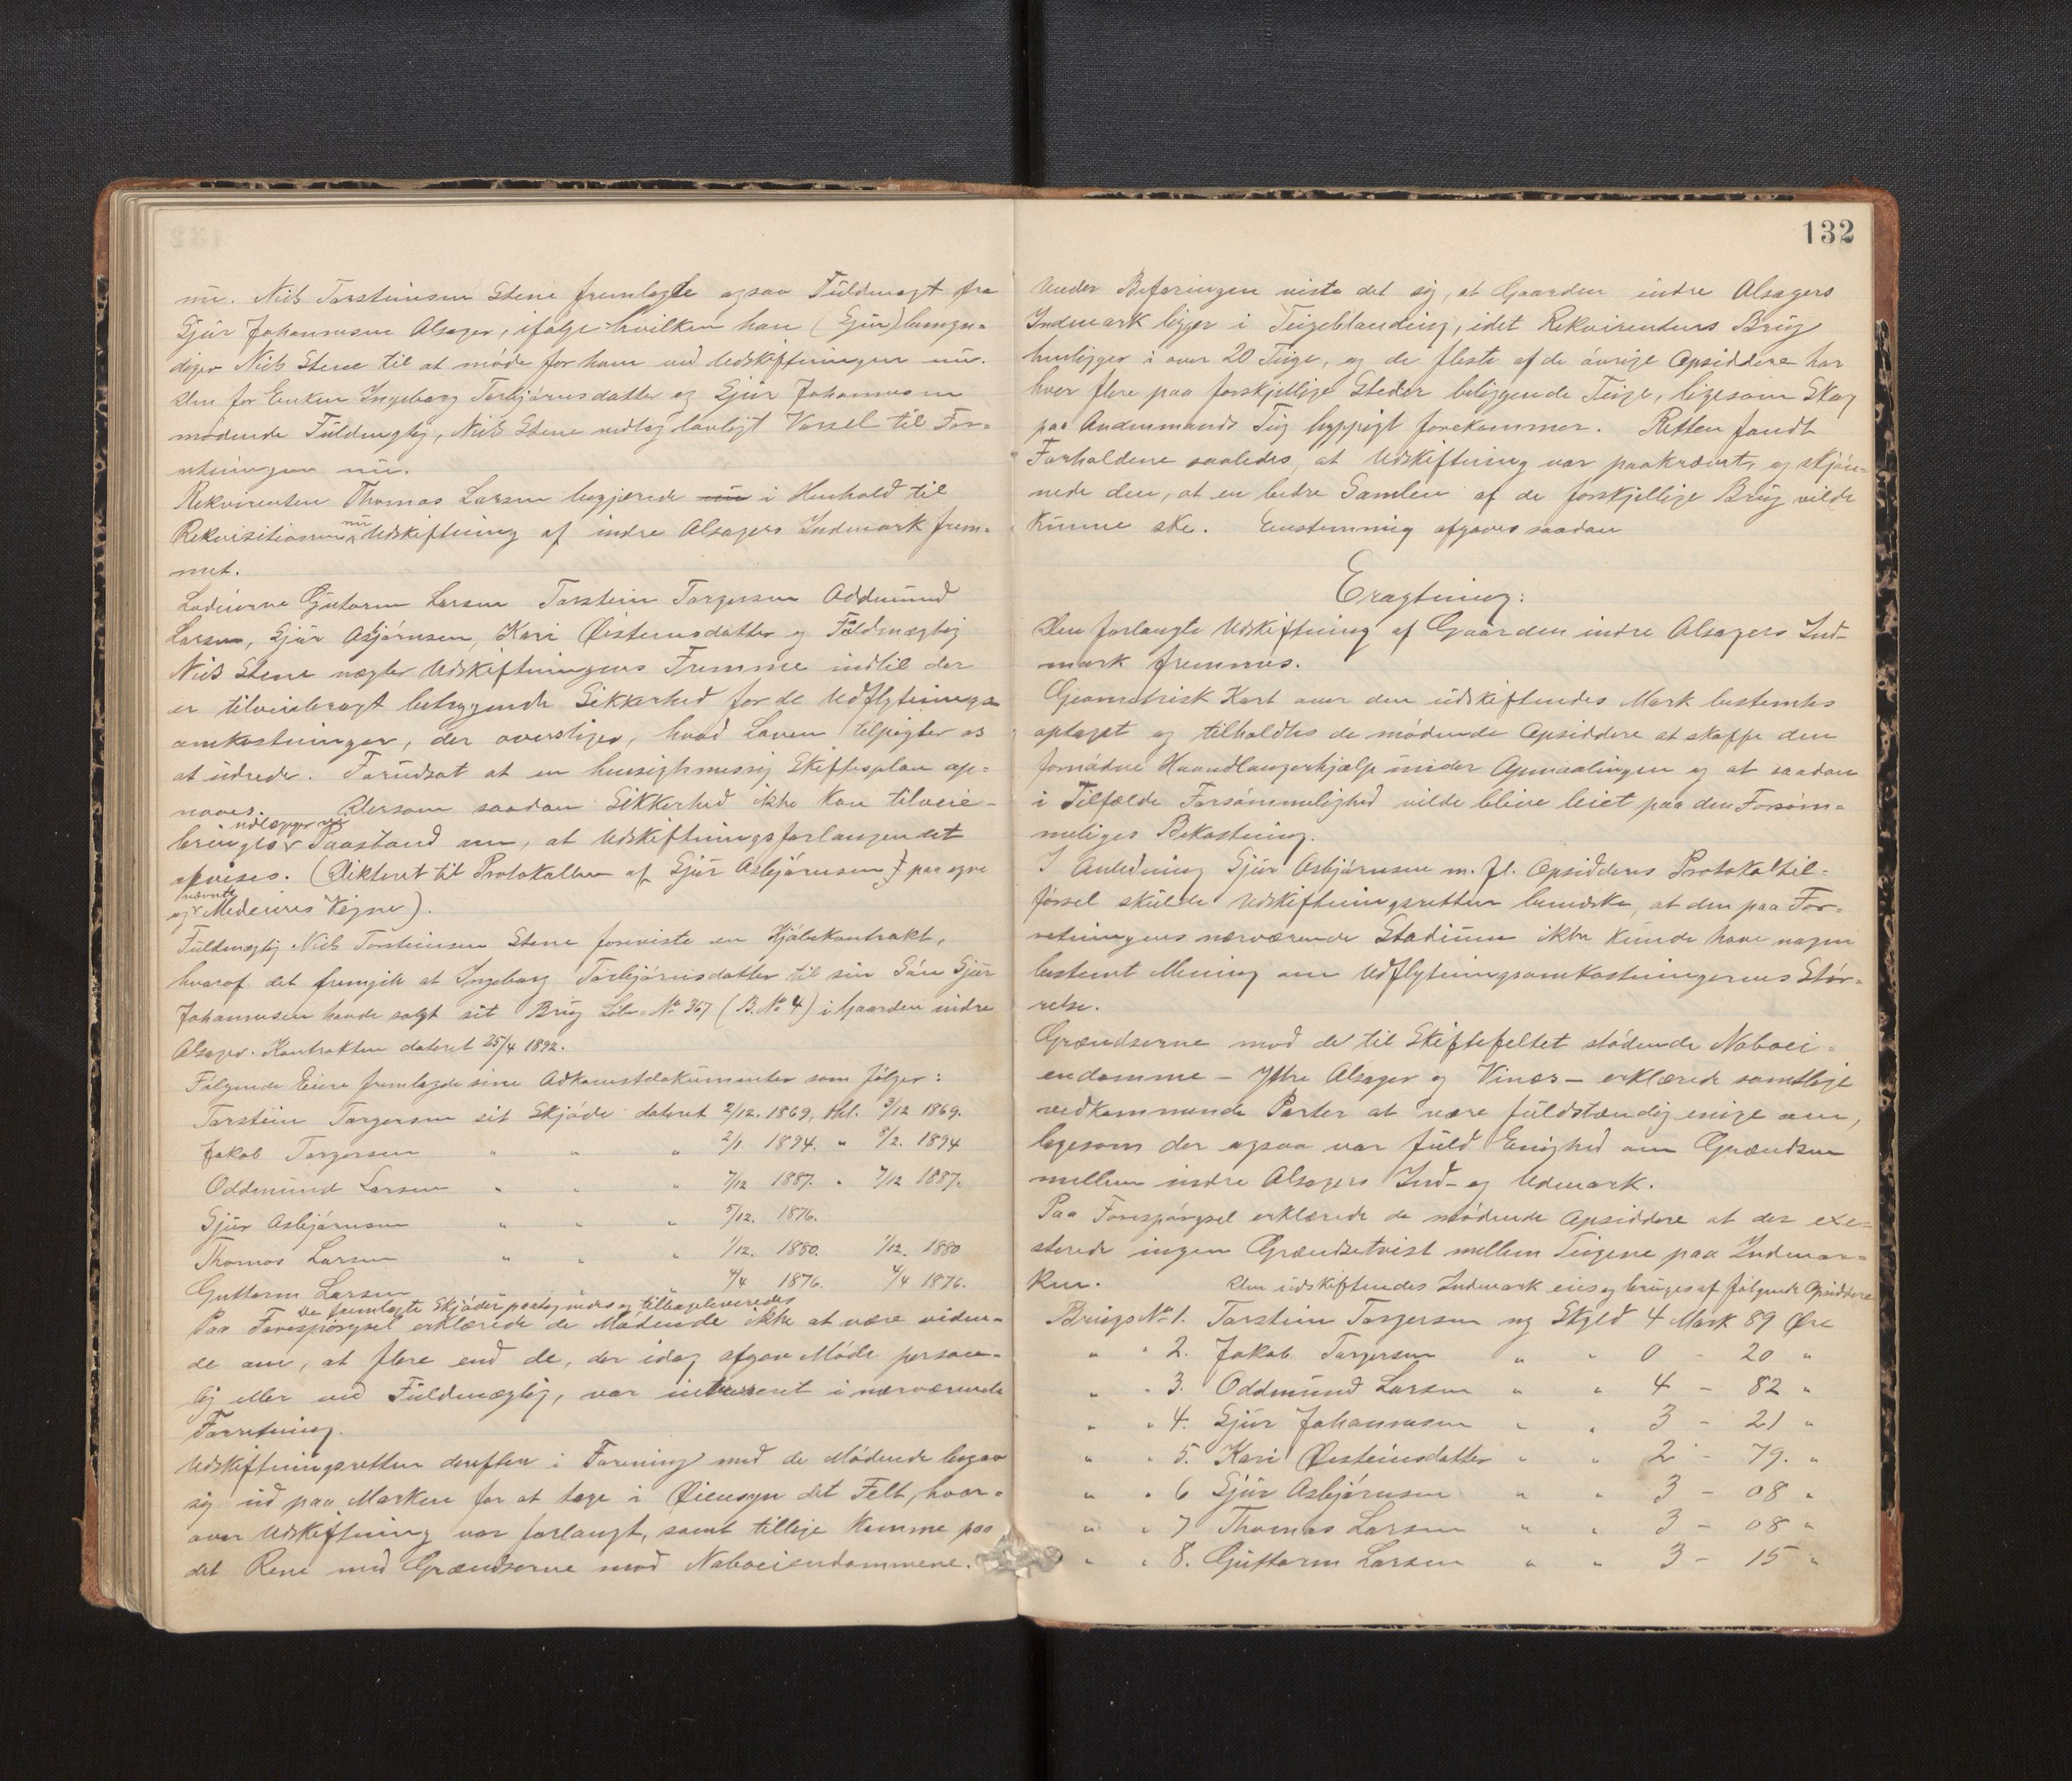 nu. Niels Torsteinsen Stene fremlagde ogsaa Fuldmagt fra
Sjur Johannessen Alsager, ifølge hvilken han (Sjur) bemyn-
diger Niels Stene til at møde for ham ved Udskiftningen nu.
Den for Enken Ingeborg Torbjørnsdatter og Sjur Johannessen
mødende Fuldmægtig, Niels Stene vedtog lovligt Varsel til For-
retningen nu.
Rekvirenten Thomas Larsen begjærede i Henhold til
Rekvisitionen nu Udskiftning af indre Alsagers Indmark frem-
met.
Lodeierne Guttorm Larsen Torstein Torgersen Oddmund
Larsen, Sjur Asbjørnsen, Kari Østensdatter og Fuldmægtig
Niels Stene nægter Udskiftningens Fremme indtil der
er tilveiebragt betryggende Sikkerhed for de Udflytnings-
omkostninger, der overstiger, hvad Loven tilpligter os
at udrede. Forudsat at en hensigtsmessig Skifteplan op-
naaes. Dersom saadan Sikkerhed ikke kan tilveie-
bringes nedlægger vi Paastand om, at Udskiftningsforlangendet
afvises. (Dikteret til Protokollen af Sjur Asbjørnsen paa egne
og nævnte Medeieres Vegne).
Fuldmægtig Niels Torsteinsen Stene foreviste en Kjøbekontrakt,
hvoraf det fremgik at Ingeborg Torbjørnsdatter til sin Søn Sjur
Johannessen havde solgt sit Brug Løbe-No 367 (B. No 4) i Gaarden indre
Alsager. Kontrakten dateret 25/4 1892.
Følgende Eiere fremlagde sine Adkomstdokumenter som følger:
Torstein Torgersen sit Skjøde dateret 2/12. 1869, thl. 3/12 1869.
Jakob Torgersen " " " 2/1 1894. " 8/2. 1894
Oddmund Larsen " " " 7/12 1887. " 7/12 1887.
Sjur Asbjørnsen " " " 5/12. 1876.
Thomas Larsen " " " 1/12. 1880. 1/12. 1880
Guttorm Larsen " " " 4/4 1876. 4/4 1876.
De fremlagte Skjøder paategnedes og tilbageleveredes
Paa Forespørgsel erklærede de Mødende ikke at være viden-
de om, at flere end de, der idag afgav Møde person-
lig eller ved Fuldmægtig, var interesseret i nærværende
Forretning.
Udskiftningsretten derefter i Forening med de Mødende begav
sig ud paa Marken for at tage i Øiensyn det Felt, hvor-
over Udskiftning var forlangt, samt tillige komme paa
det Rene med Grændserne mod Naboeiendommene.
132
Under Befaringen viste det sig, at Gaarden indre Alsagers
Indmark ligger i Teigeblanding, idet Rekvirentens Brug
henligger i over 20 Teige, og de fleste af de øvrige Opsiddere har
hver flere paa forskjellige Steder beliggende Teige, ligesom Skog
paa Andenmands Teig hyppigt forekommer. Retten fandt
Forholdene saaledes, at Udskiftning var paakrævet, og skjøn-
nede den, at en bedre Samlen af de forskjellige Brug vilde
kunne ske. Enstemmig afgaves saadan
Eragtning:
Den forlangte Udskiftning af Gaarden indre Alsagers Ind-
mark fremmes.
Geometrisk Kart over den udskiftendes Mark bestemtes
optaget og tilholdtes de mødende Opsiddere at skaffe den
fornødne Haandlangerhjælp under Opmaalingen og at saadan
i Tilfælde Forsømmelighed vilde blive leiet paa den Forsøm-
meliges Bekostning.
I Anledning Sjur Asbjørnsen m. fl. Opsidderes Protokoltil-
førsel skulde Udskiftningsretten bemerke, at den paa For-
retningens nærværende Stadium ikke kunde have nogen
bestemt Mening om Udflytningsomkostningernes Stør-
relse.
Grændserne mod de til Skiftefeltet stødende Naboei-
endomme – Ytre Alsager og Vines – erklærede samtlige
vedkommende Parter at være fuldstændig enige om,
ligesom der ogsaa var fuld Enighed om Grændsen
mellem indre Alsagers Ind- og Udmark.
Paa Forespørgsel erklærede de mødende Opsiddere at der exi-
sterede ingen Grændsetvist mellem Teigene paa Indmar-
ken. Den udskiftendes Indmark eies og bruges af følgende Opsiddere
Brugs No 1. Torstein Torgersen ny Skyld 4 Mark 89 Øre
" " 2. Jakob Torgersen " " 0 – 20 "
" " 3. Oddmund Larsen " " 4 – 82 "
" " 4. Sjur Johannessen " " 3 – 21 "
" " 5. Kari Øisteinsdatter " " 2 – 79. "
" " 6 Sjur Asbjørnsen " " 3 – 08 "
" " 7 Thomas Larsen " " 3 – 08 "
" " 8. Guttorm Larsen " " 3 – 15 "